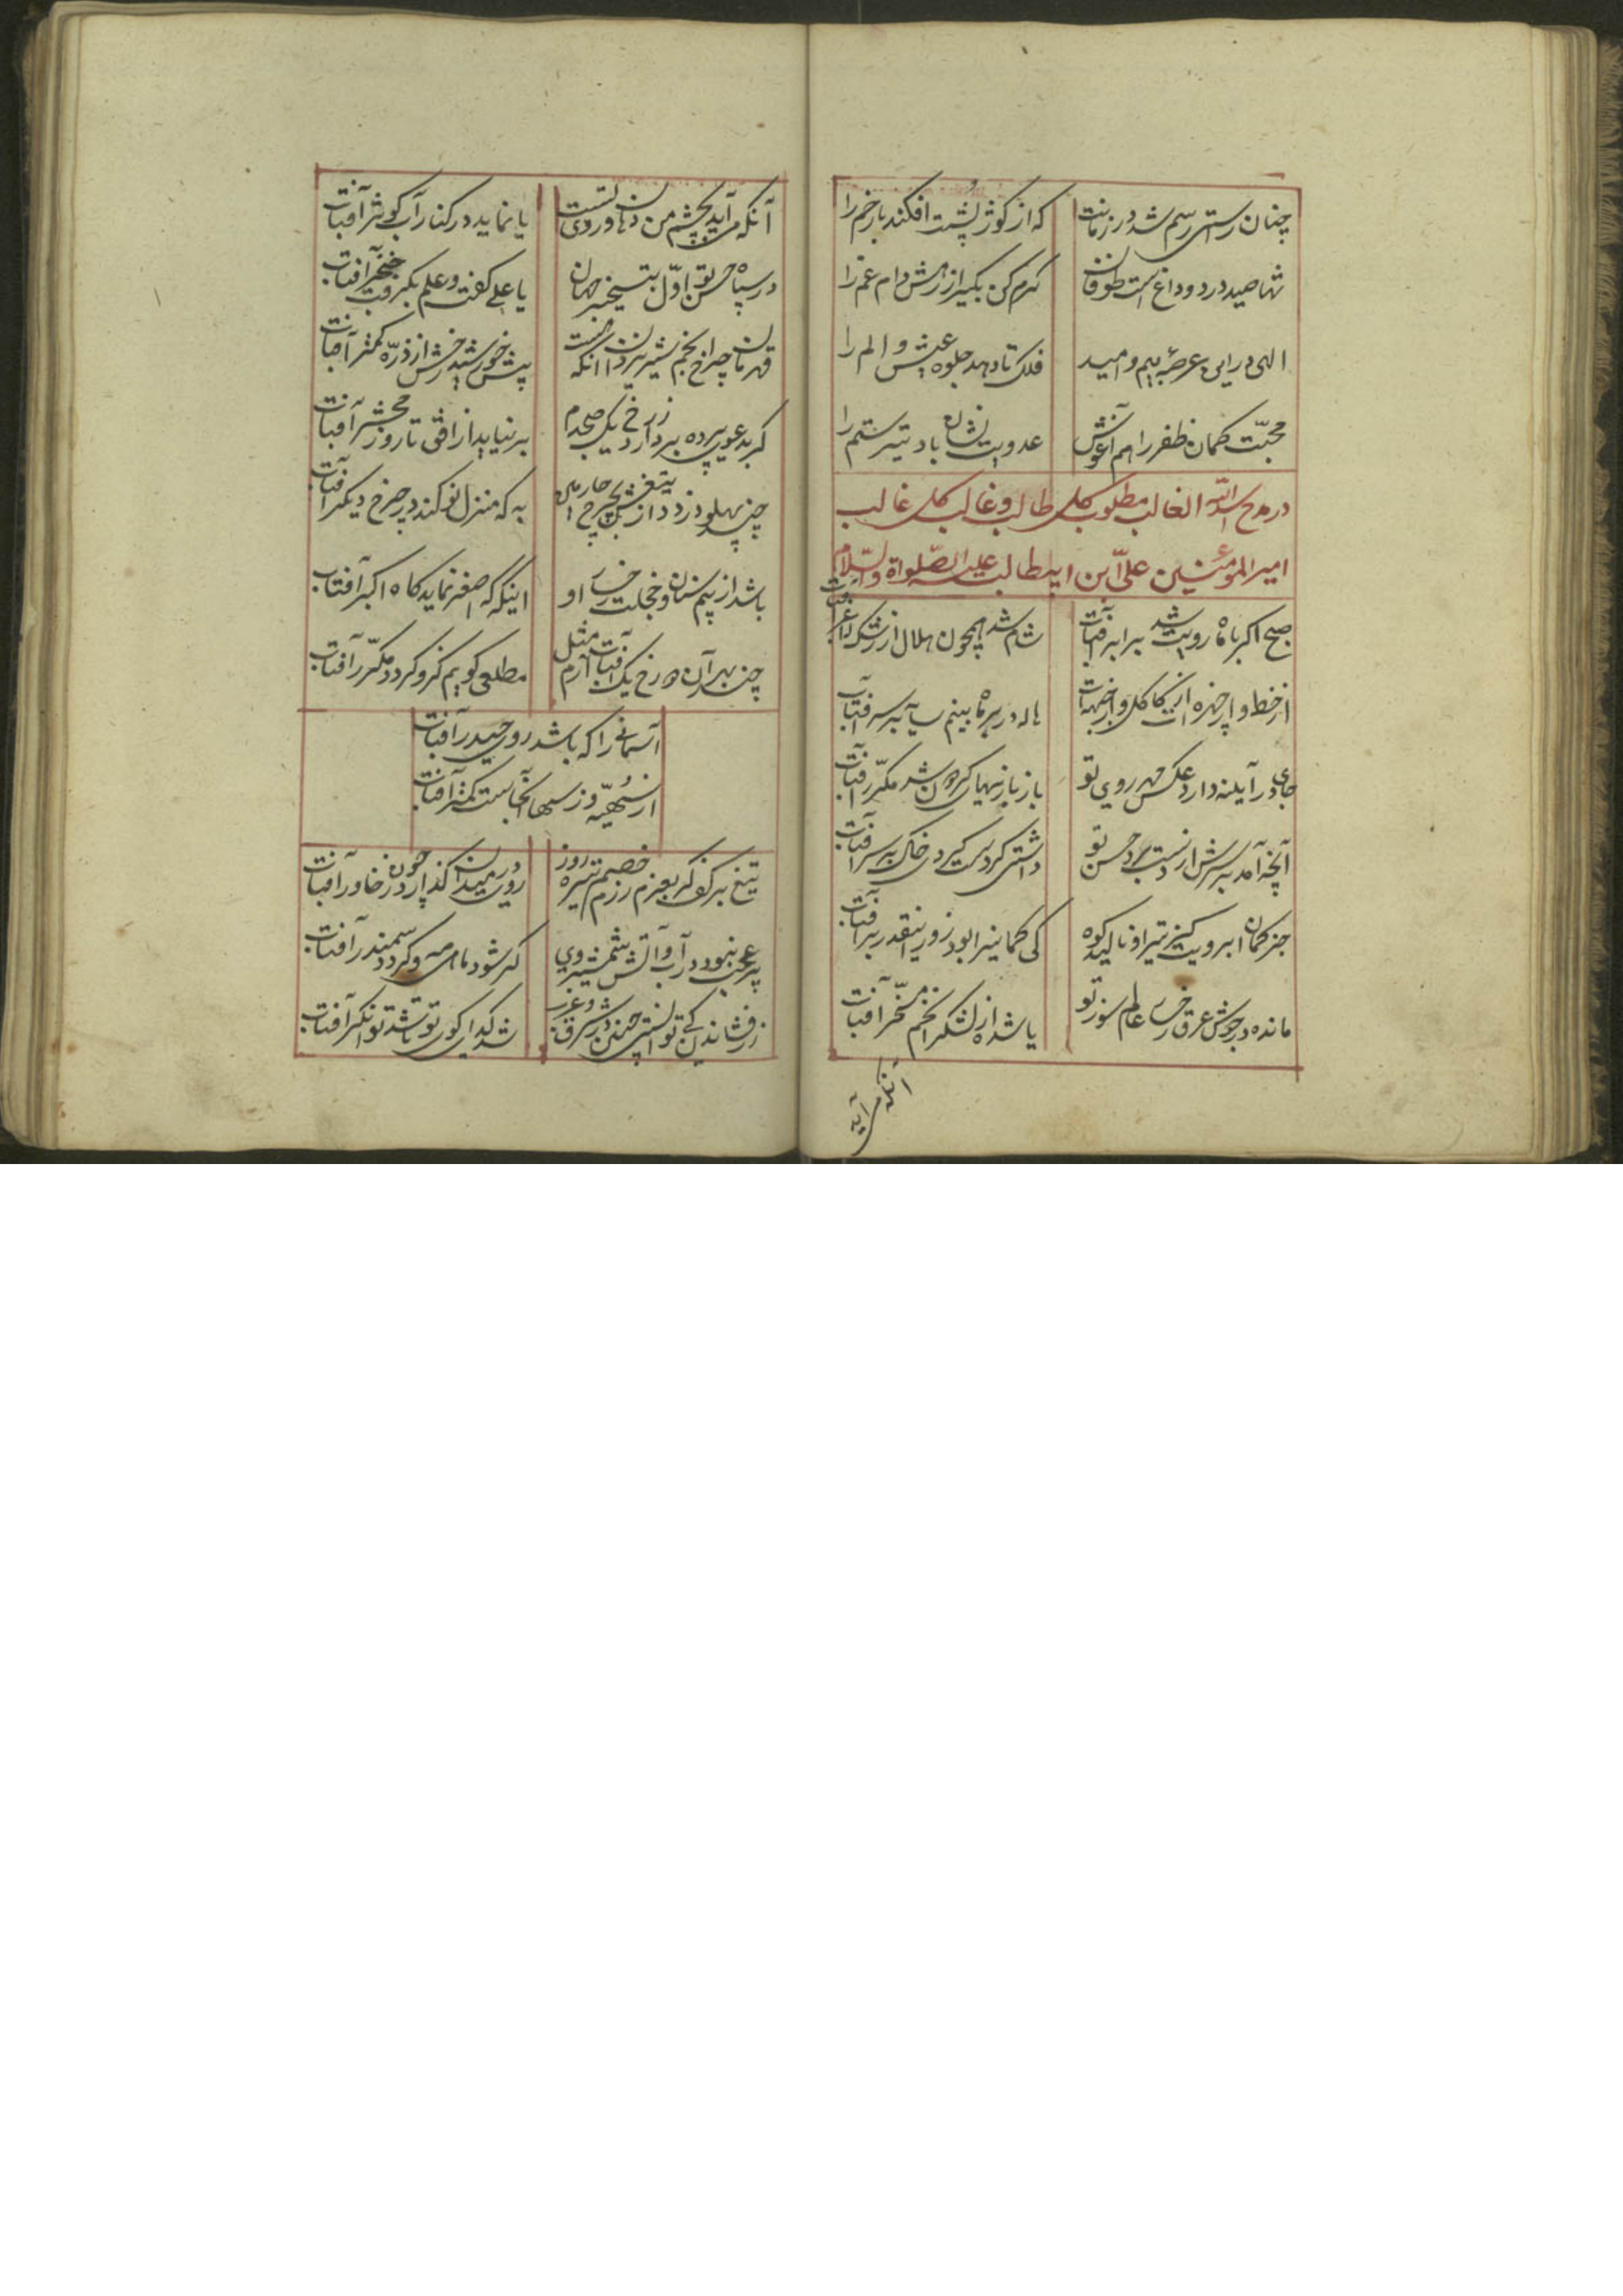 چنان راستی رسم شد در زمانت
که از کوژ پشت افکند بار خم را
شها صید درد و داغ است طوفان
کرم کن بگیر از رمش دام غم را
الهی درین عرصهٔ بیم و امید
فلک تا دهد جلوه عیش و الم را
محبّت کمان ظفر را هم آغوش
عدویت نشان باد تیر ستم را
در مدح اسد الله الغالب مطلوب کل طالب و غالب کل غالب
امیر المومنین علی ابن ابیطالب علیه الصّلواة والسّلام
صبح اکبر با ماه رویت شد برابر آفتاب
شام شد همچون هلال از رشک
از خط و از چهره از کاکل و از جبهه ات
هاله در بر ماه بینم سایه بر سر آفتاب
جای در آینه دارد عکس مهر روی تو
باز بازیهای گردون شد مکرّر آفتاب
آنچه آمد بر سرش از دست برد حسن تو
داشتی گر دست کردی خاک بر سر آفتاب
جز کمان ابرویت کز تیر او نالید کوه
کی کمانی را بود زور اینقدر بر آفتاب
مانده در جوش عرق عالم سوز تو
یا شده از لشکر انجم مسخّر آفتاب
آنکه می آید
آنکه می آید بچشم من دهان و روی تست
یا نماید در کنار آب کوثر آفتاب
در سپاه حسن تو اوّل بتسخیر جهان
یا علی گفت و علم بگرفت خنجر آفتاب
قهرمان چرخ انجم شیر یزدان آنکه هست
پیش خورشید رخش از ذرّه کمتر آفتاب
گر بدعوی پرده بردارد ز رخ یک صبحدم
بر نیاید از افق تا روز محشر آفتاب
چند پهلو دزدد از تیغش بچرخ چارمین
به که منزل نو کند در چرخ دیگر آفتاب
باشد از بیم سنان و خجلت رخسار او
اینکه گه اصغر نماید گاه اکبر آفتاب
چند بهر آن دو رخ یک آفتاب آرم مثل
مطلعی گویم کزو گردد مکرّر آفتاب
آسمانی را که باشد روی حیدر آفتاب
از سُها آنجاست کمتر آفتاب
تیغ بر کف گر بعزم رزم خصم تیره روز
روی در میدان گذارد چون در خاور آفتاب
عجب نبود در آب و آتش شمشیر وی
گر شود ماهی مه و گردد سمندر آفتاب
زر فشاندن کی توانستی چنین در شرق و غرب
شد گدای کوی تو تا شد توانگر آفتاب